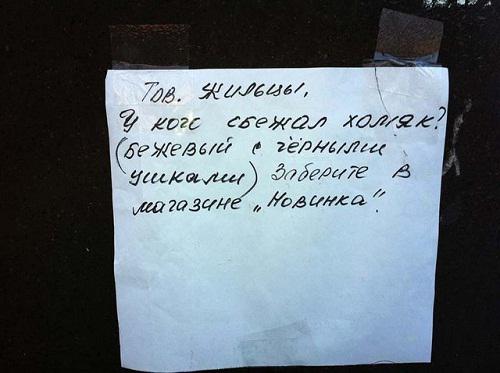 Тов. жильцы,
У кого сбежал хомяк?
(бежевый с чёрными
ушками) Заберите в
магазине „Новинка".